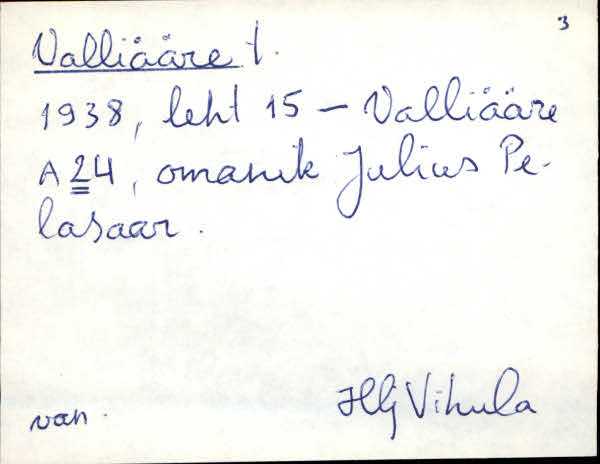 3
Valliääre t.
1938, leht 15 – Valliääre
A 24, omanik Julius Pe-
lasaar.
van. Hlj Vihula